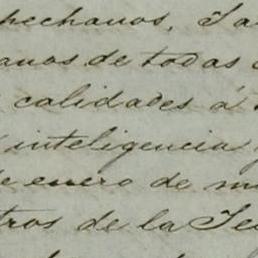 pechanos, Ta
anos de todas
calidades á
inteligencia
de enero de m
tros de la Te